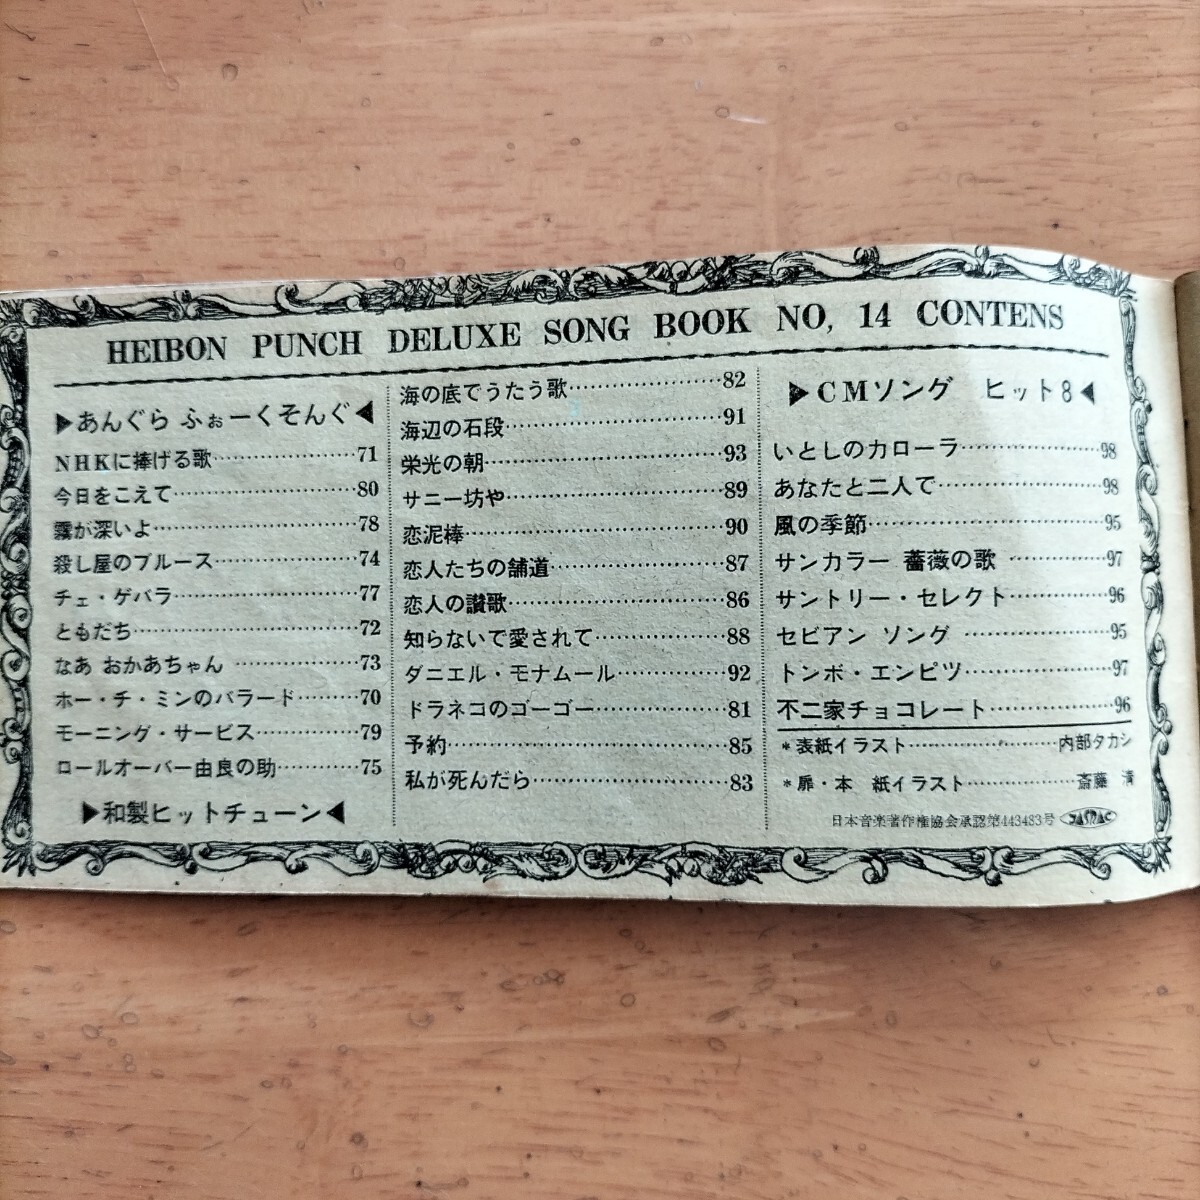 HEIBON PUNCH DELUXE SONG BOOK NO, 14 CONTENS
▶あんぐら ふぉーくそんぐ◀
NHKに捧げる歌…………………71
今日をこえて…………………80
霧が深いよ…………………78
殺し屋のブルース…………………74
チェ・ゲバラ…………………77
ともだち…………………72
なあ おかあちゃん…………………73
ホー・チ・ミンのバラード…………70
モーニング・サービス…………………79
ロールオーバー由良の助…………75
▶和製ヒットチューン◀
海の底でうたう歌…………………82
海辺の石段…………………91
栄光の朝…………………93
サニー坊や…………………89
恋泥棒…………………90
恋人たちの舗道…………………87
恋人の讃歌…………………86
知らないで愛されて…………………88
ダニエル・モナムール…………………92
ドラネコのゴーゴー…………………81
予約…………………85
私が死んだら…………………83
▶CMソング ヒット8◀
いとしのカローラ…………………98
あなたと二人で…………………98
風の季節…………………95
サンカラー 薔薇の歌…………………97
サントリー・セレクト…………………96
セビアン ソング…………………95
トンボ・エンピツ…………………97
不二家チョコレート…………………96
*表紙イラスト…………………内部タカシ
*扉・本 紙イラスト…………………斎藤 清
日本音楽著作権協会承認第443483号
JASRAC